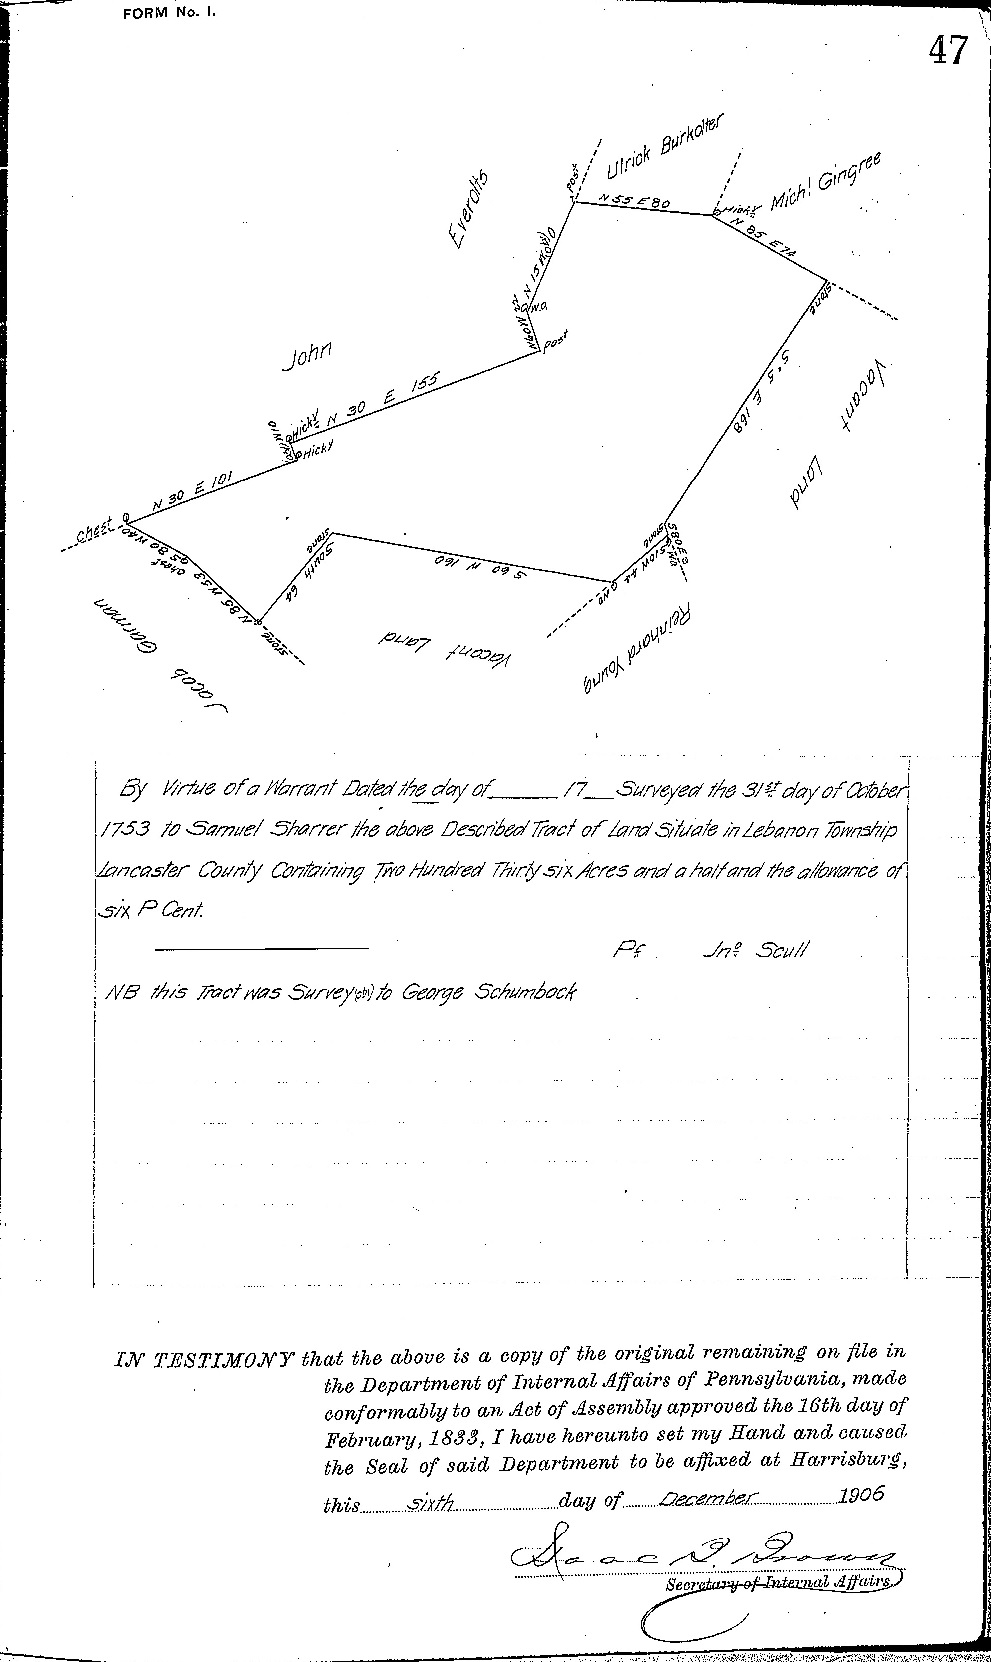 FORM No. 1.
47
Ulrick Burkolter
Everolts
Post
N 55 E 80
Hicky
Mich! Gingree
N 85 E 74
stone
N 15
post
John
S 5 E 168
Vacant
Land
N 30 E 155
Hicky
Hicky
N 30 E 101
chest
stone
stone
S 60 W 160
South 64
chest
N 85 W 53
stone
Jacob Garman
Vacant Land
Reinhard Young
By Virtue of a Warrant Dated the day of ______ 17__ Surveyed the 31st day of October
1753 to Samuel Sharrer the above Described Tract of Land Situate in Lebanon Township
Lancaster County Containing Two Hundred Thirty six Acres and a half and the allowance of
six P Cent.
Pr Jno Scull
NB this Tract was Survey(ed) to George Schumbock
IN TESTIMONY that the above is a copy of the original remaining on file in
the Department of Internal Affairs of Pennsylvania, made
conformably to an Act of Assembly approved the 16th day of
February, 1833, I have hereunto set my Hand and caused
the Seal of said Department to be affixed at Harrisburg,
this sixth day of December 1906
Isaac B. Brown
Secretary of Internal Affairs.